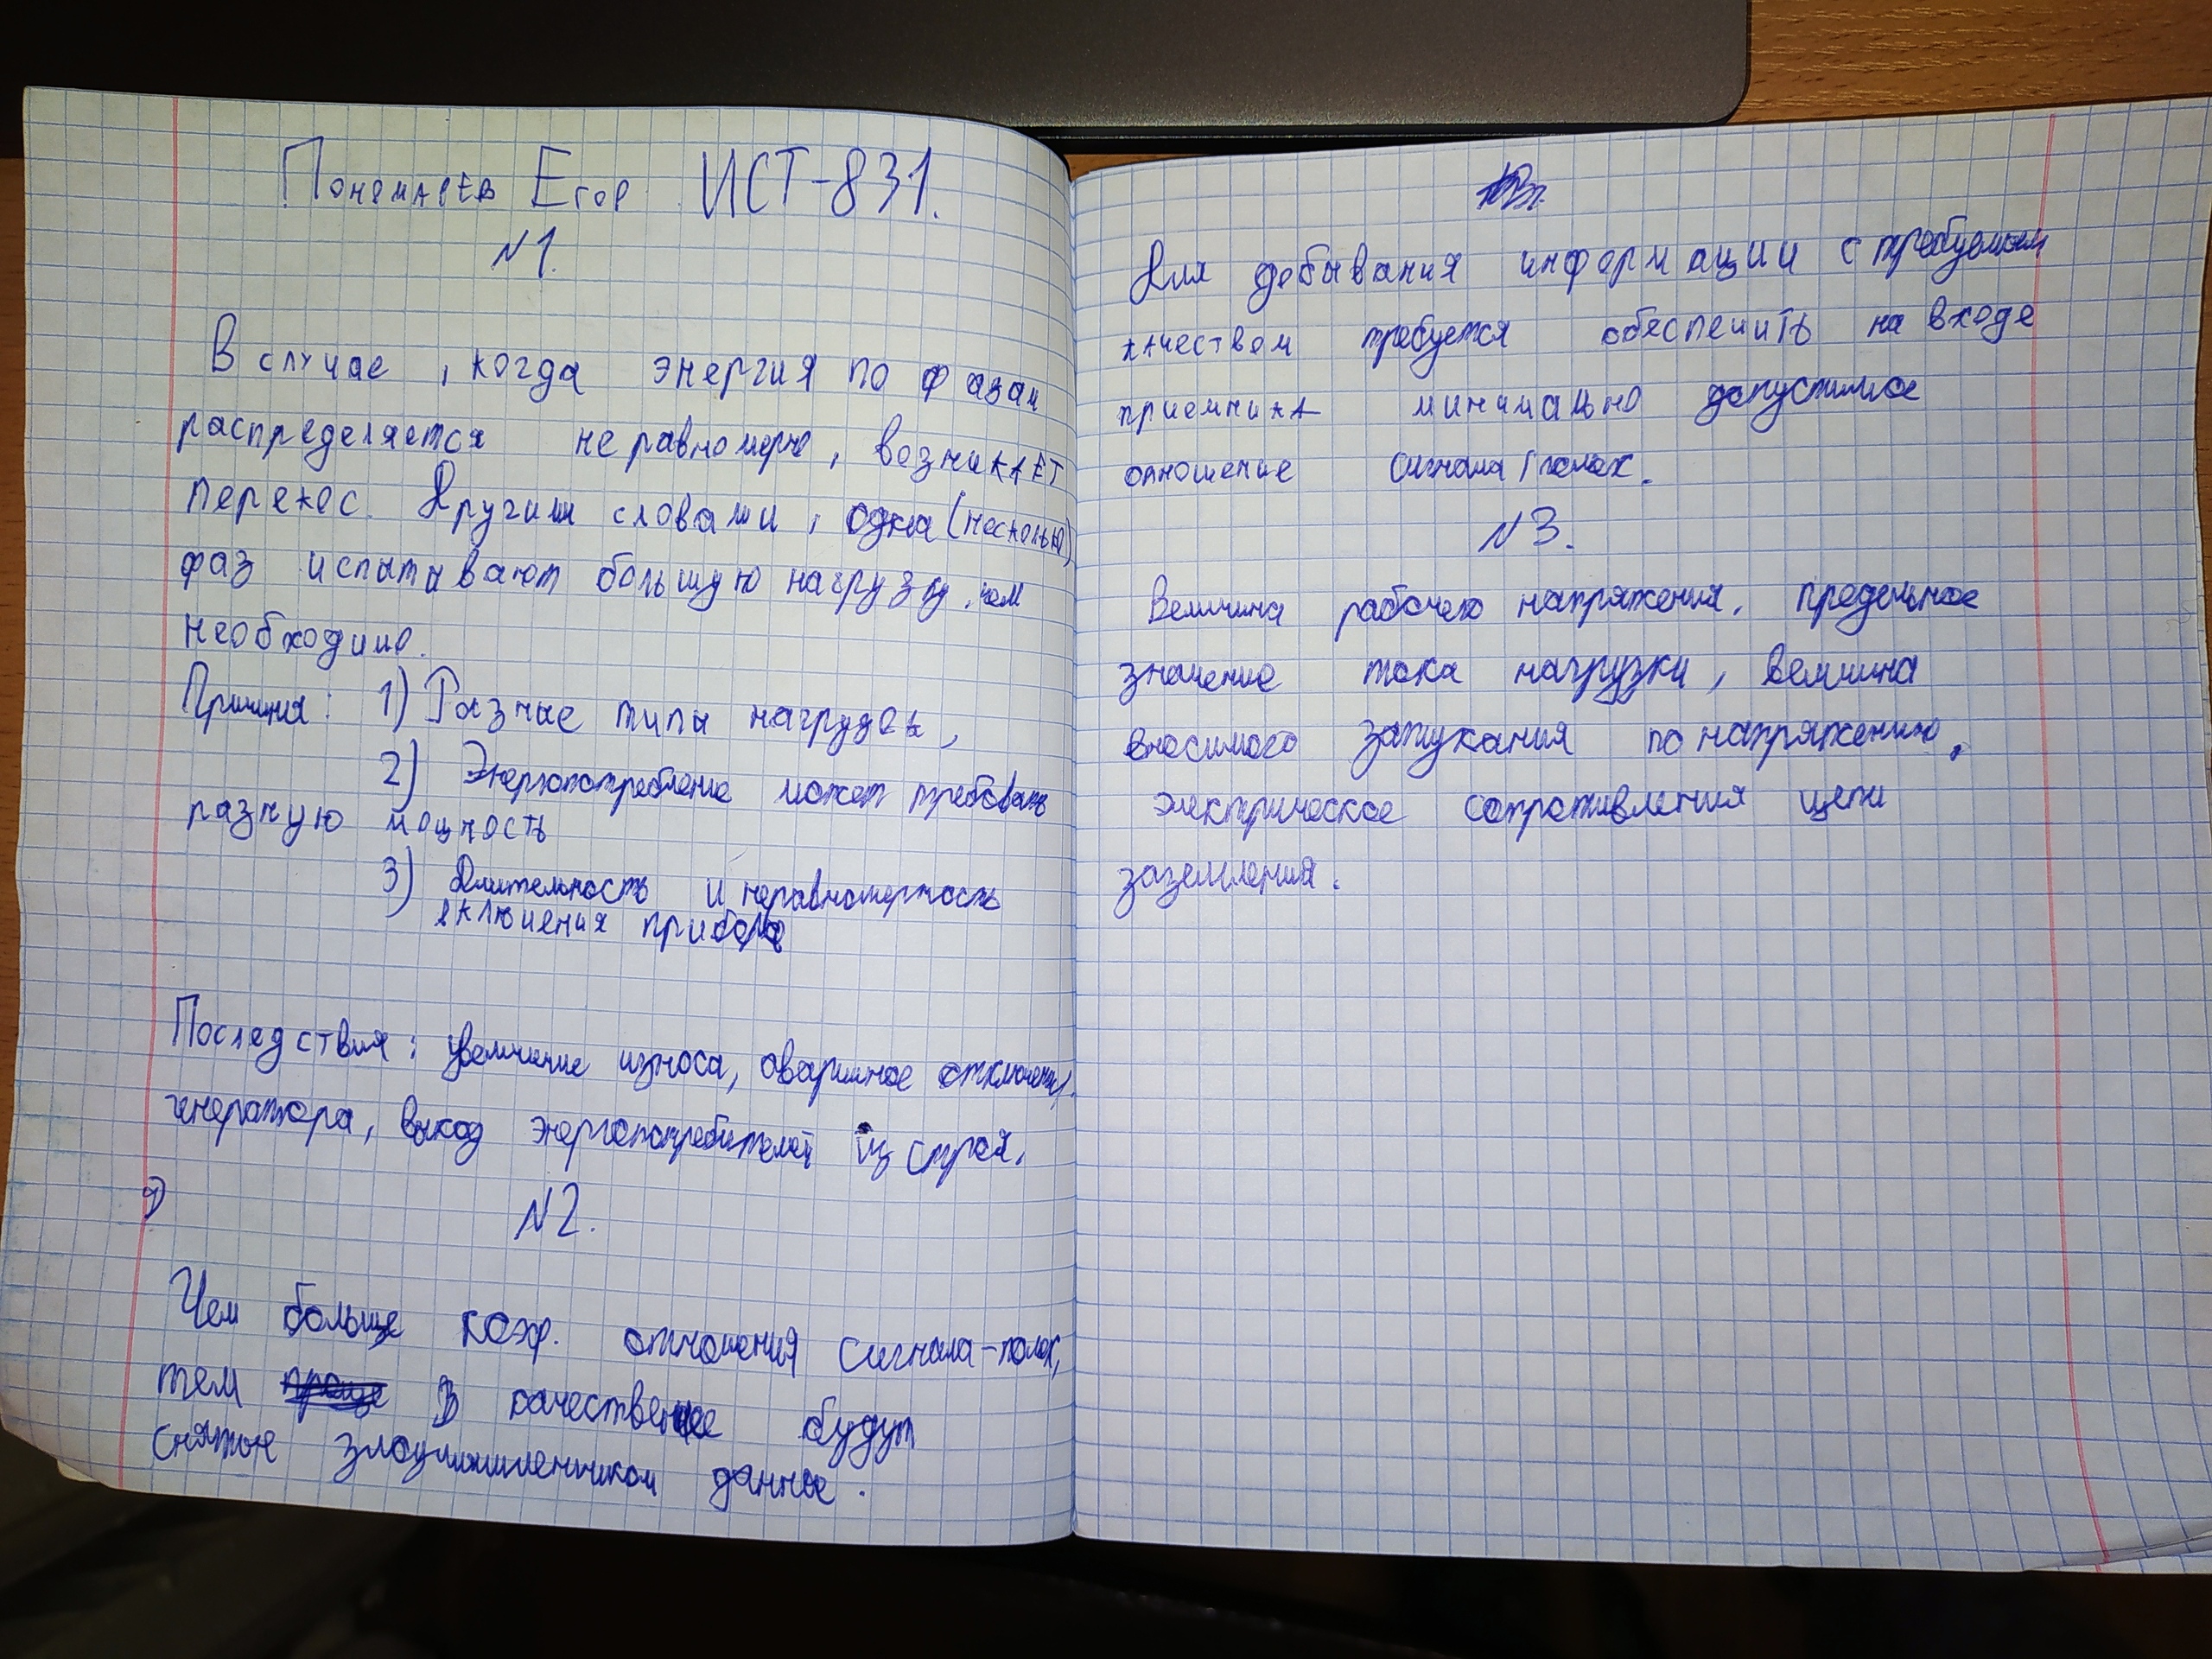 Пономарев Егор ИСТ-831.
№1.
В случае, когда энергия по фазам
распределяется неравномерно, возникает
перекос. Другими словами, одна (несколько)
фаз испытывают большую нагрузку, чем
необходимо.
Причина: 1) Разные типы нагрузок,
2) Энергопотребление может требовать
разную мощность
3) Длительность и неравномерность
включения прибора
Последствия: увеличение износа, аварийное отключение
генератора, выход энергопотребителей из строя.
№2.
Чем больше коэф. отношения сигнала-помех,
тем в качественнее будут
снятые злоумышленником данные.
Для добывания информации с требуемым
качеством требуется обеспечить на входе
приемника минимально допустимое
отношение сигнала/помех.
№3.
Величина рабочего напряжения, предельное
значение тока нагрузки, величина
вносимого затухания по напряжению,
электрическое сопротивления цепи
заземления.